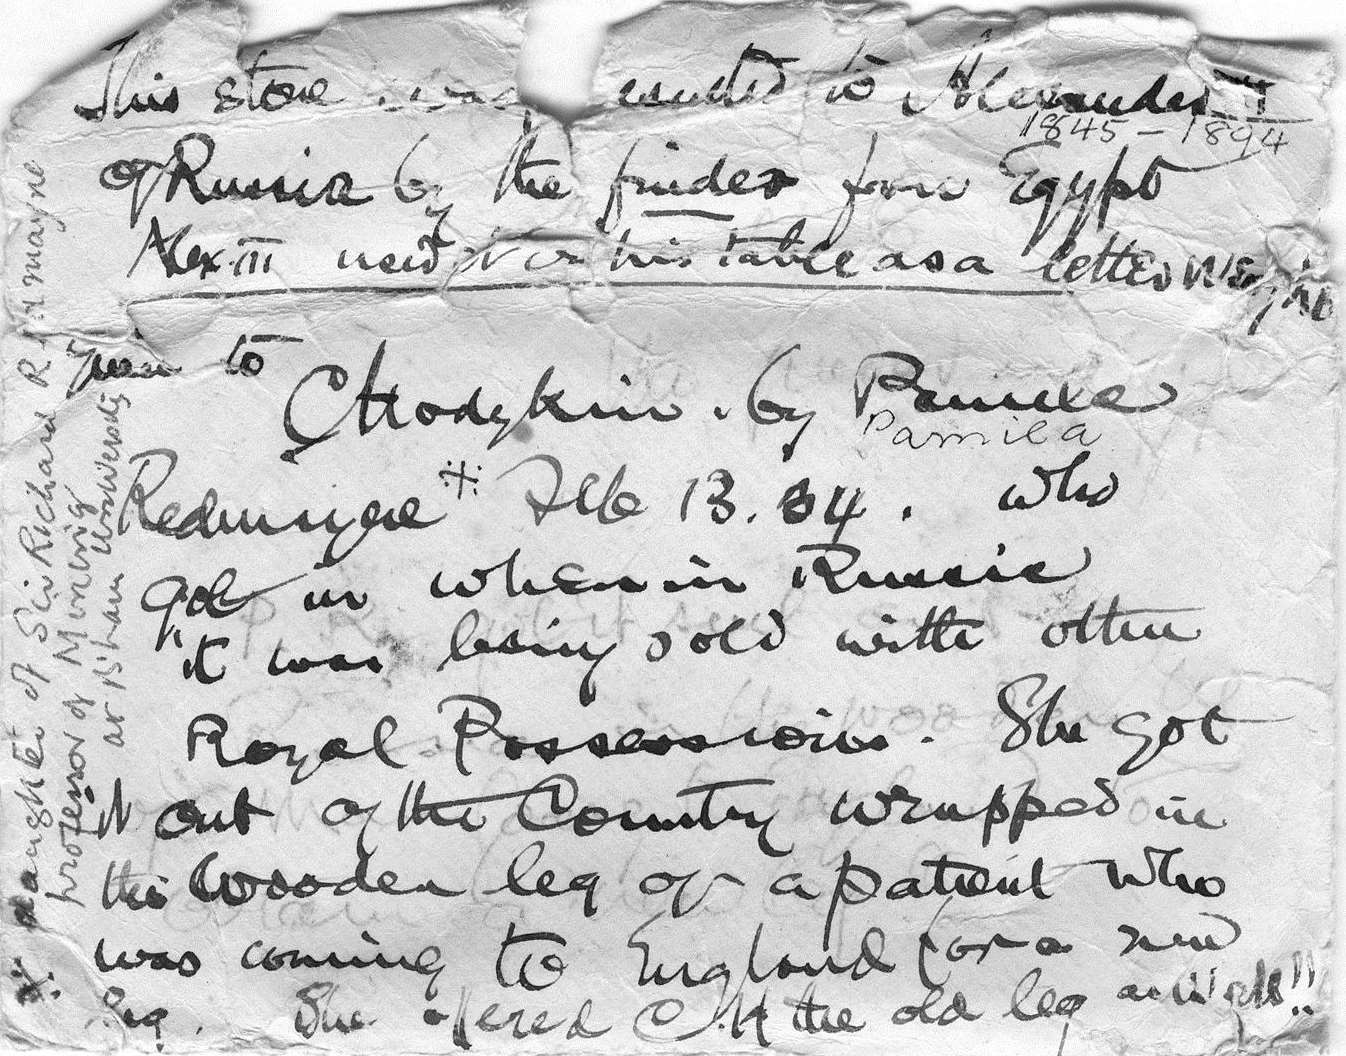 This stone was to Alexander II
1845 – 1894
of Russia by the finder from Egypt
Alex III used it on his table as a letter weight
given to
C Hodgkin . by Pamela
Pamila
Redmayne ⁜ Feb 13. 34 . who
got in when in Russia
"it was being sold with other
Royal Possessions . She got
it out of the Country wrapped in
the wooden leg of a patient who
was coming to England for a new
leg . She offered C.H the old leg as well!!
⁜ daughter of Sir Richard Redmayne
professor of Mining
at B'ham University